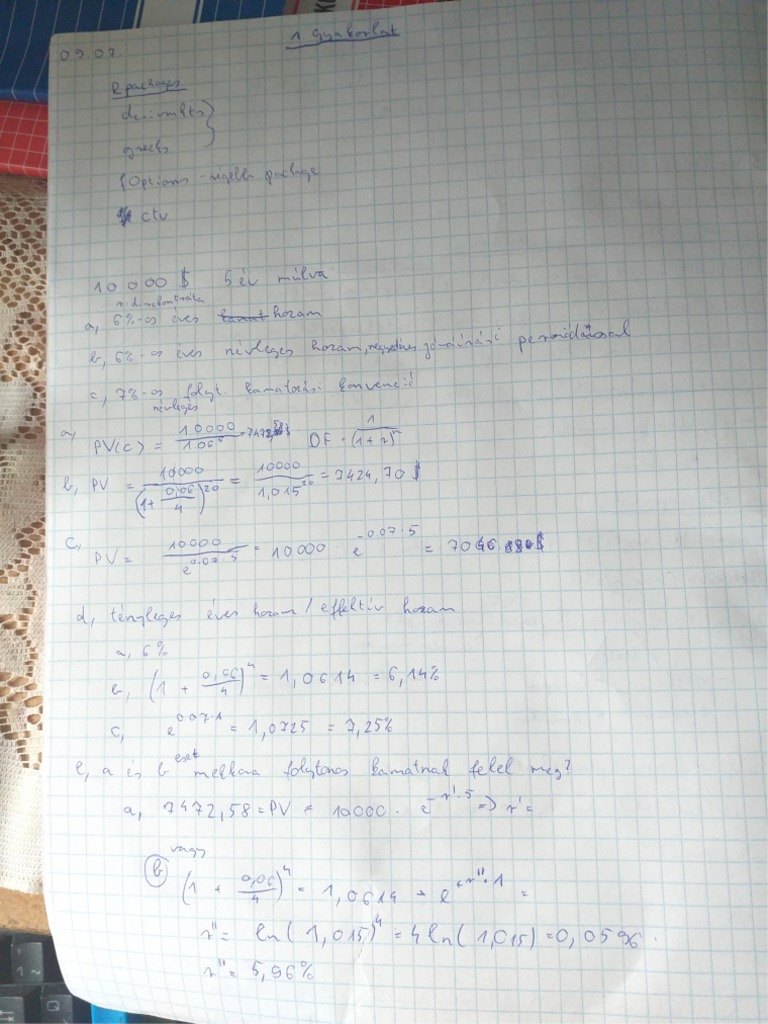 1 Gyakorlat
09.07.
R packages
derivmkts }
greeks
fOptions - régebbi package
ctv
10 000 $ 5 év múlva
r. diszkontráta
a, 6%-os éves hozam
b, 6%-os éves névleges hozam, negyedéves jóváírási periódussal
c, 7%-os folyt. kamatozási konvenció
névleges
a, PV(C) = 10000/1.06^5 = 7472,58$ DF = 1/(1+r)^n
b, PV = 10000/(1+0,06/4)^20 = 10000/1,015^20 = 7424,70 $
c, PV = 10000/e^0.07·5 = 10000 · e^-0.07·5 = 7046.88$
d, tényleges éves hozam / effektív hozam
a, 6%
b, (1 + 0,06/4)^4 = 1,0614 = 6,14%
c, e^0.07·1 = 1,0725 = 7,25%
e, a és b eset mekkora folytonos kamatnak felel meg?
a, 7472,58 = PV = 10000 · e^-r'·5 => r' =
vagy
b (1 + 0,06/4)^4 = 1,0614 = e^+r''·1 =
r'' = ln(1,015)^4 = 4 ln(1,015) = 0,0596.
r'' = 5,96%